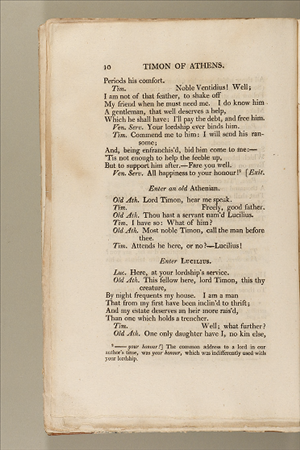 10 TIMON OF ATHENS.
Periods his comfort.
Tim. Noble Ventidius! Well;
I am not of that feather, to shake off
My friend when he must need me. I do know him
A gentleman, that well deserves a help,
Which he shall have: I'll pay the debt, and free him.
Ven. Serv. Your lordship ever binds him.
Tim. Commend me to him: I will send his ran-
som;
And, being enfranchis'd, bid him come to me:—
'Tis not enough to help the feeble up,
But to support him after.—Fare you well.
Ven. Serv. All happiness to your honour!⁹ [Exit.
Enter an old Athenian.
Old Ath. Lord Timon, hear me speak.
Tim. Freely, good father.
Old Ath. Thou hast a servant nam'd Lucilius.
Tim. I have so: What of him?
Old Ath. Most noble Timon, call the man before
thee.
Tim. Attends he here, or no?—Lucilius!
Enter LUCILIUS.
Luc. Here, at your lordship's service.
Old Ath. This fellow here, lord Timon, this thy
creature,
By night frequents my house. I am a man
That from my first have been inclin'd to thrift;
And my estate deserves an heir more rais'd,
Than one which holds a trencher.
Tim. Well; what further?
Old Ath. One only daughter have I, no kin else,
⁹ —— your honour!] The common address to a lord in our
author's time, was your honour, which was indifferently used with
your lordship.